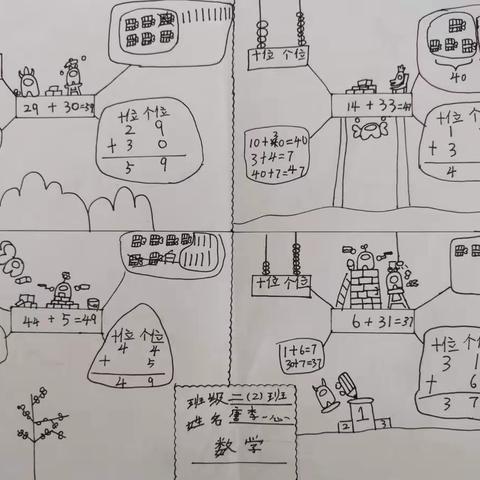 29 + 30=59
十位 个位
2 9
+ 3 0
5 9
十位 个位
40
14 + 33=47
10+30=40
3+4=7
40+7=47
十位
1
+ 3
4
44 + 5=49
十位 个位
4 4
+ 5
4 9
十位 个位
6 + 31=37
1+6=7
30+7=37
十位 个位
3 1
+ 6
3 7
2 1 3
班级 二(2)班
姓名 唐李一心
数学